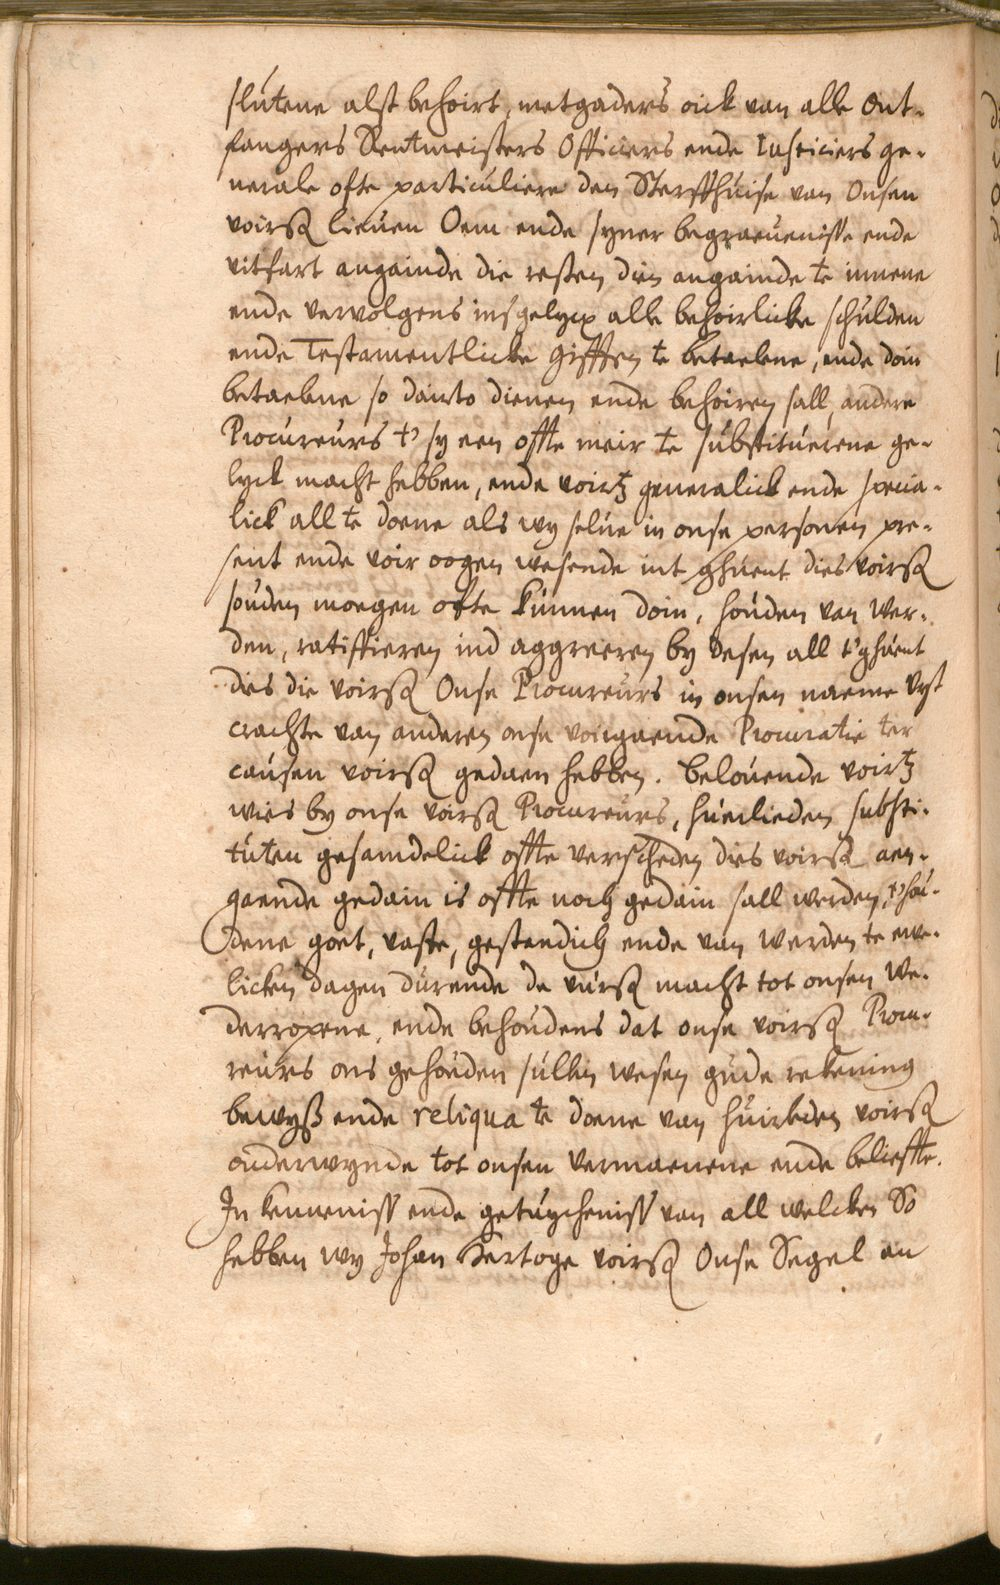 slutene alst behoirt, metgaders oick van alle Ont-
fangers Rentmeisters Officiers ende Iusticiers ge-
nerale ofte particuliere den Sterffhuise van Onsen
voirß lieuen Oem ende syner begraeuenisse ende
vitfart angainde die resten dien angainde te innene
ende vervolgens insgelycx alle behoirlicke schulden
ende Testamentlicke gifften te betaelene, ende doin
betaelene so dairto dienen ende behoiren sall, andere
Procureurs t' sy een offte meir te substituerene ge-
lyck macht hebben, ende voirtz generalick ende specia-
lick all te doene als wy selue in onse personen pre-
sent ende voir oogen wesende int ghuent dies voirß
souden moegen ofte kunnen doin, houden van wer-
den, ratiffieren ind aggreeren by desen all t'ghuent
dies die voirß Onse Procureurs in onsen naeme vyt
crachte van anderen onse voirgaende Procuratie ter
causen voirß gedaen hebben. belouende voirtz
wies by onse voirß Procureurs, huerlieden substi-
tuten gesamdelick offte verscheden dies voirß aen-
gaende gedain is offte noch gedain sall werden, t'hou-
dene goet, vaste, gestendich ende van werden te ewe-
licken dagen durende de vurß macht tot onsen We-
derropene, ende behoudens dat onse voirß Procu-
reurs ons gehouden sullen wesen gude rekening
bewyß ende reliqua te doene van huirleden voirß
onderwynde tot onsen vermaenene ende belieffte.
In kenneniss ende getuycheniss van all welcken So
hebben wy Johan Hertoge voirß Onse Segel an